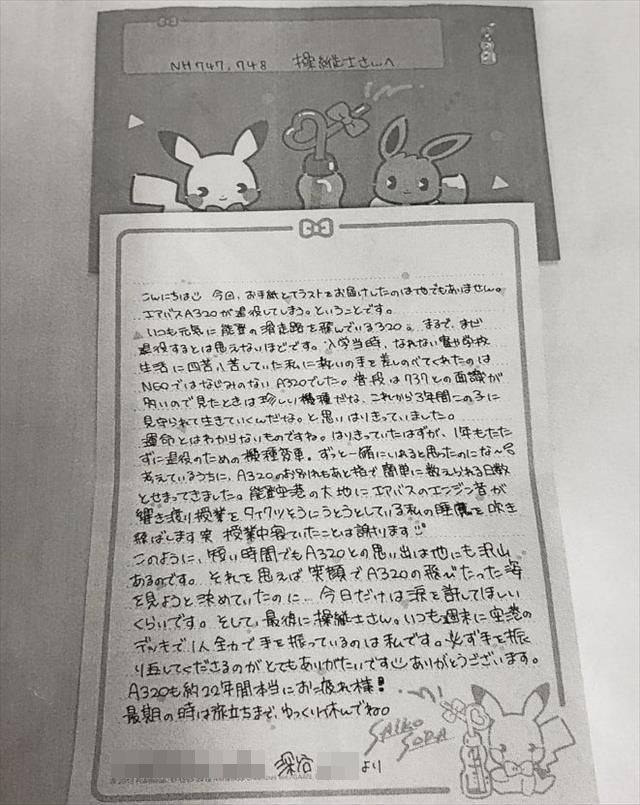 NH747,748 操縦士さんへ
こんにちは 今回、お手紙とイラストをお届けしたのは他でもありません。
エアバスA320が退役してしまう。ということです。
いつも元気に能登の滑走路を飛んでいる320。まるで、まだ
退役するとは思えないほどです。入学当時、なれない寮や学校
生活に四苦八苦していた私に救いの手を差しのべてくれたのは
NEOではなじみのないA320でした。普段は737との面識が
多いので見たときは珍しい機種だな、これから3年間この子に
見守られて生きていくんだな。と思いはりきっていました。
運命とはわからないものですね。はりきっていたはずが、1年もたた
ずに退役のための機種変更。ずっと一緒にいれると思ったのにな〜
考えているうちに、A320のお別れもあと指で簡単に数えられる日数
とせまってきました。能登空港の大地にエアバスのエンジン音が
響き渡り授業をタイクツそうにうとうとしている私の睡魔を吹き
飛ばします 実 授業中寝ていたことは謝ります
このように、短い時間でもA320との思い出は他にも沢山
あるのです。それを思えば笑顔でA320の飛びたった姿
を見ようと決めていたのに…今日だけは涙を許してほしい
くらいです。そして、最後に操縦士さん。いつも週末に空港の
デッキで1人全力で手を振っているのは私です。必ず手を振
り返してくださるのがとてもありがたいです ありがとうございます。
A320も約22年間本当にお疲れ様!
最期の時は旅立ちまで、ゆっくり休んでね。
SAIKO
SODA
深谷 より